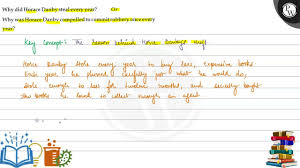 Why did Horace Danby steal every year? Or
Why was Horace Danby compelled to commit robbery once every
year?
Key Concept: The reason behind Horace Danby's
Horace Danby stole every year to buy rare, expensive books.
Each year he planned carefully just what he would do,
stole enough to last for twelve months, and secretly bought
the books he loved to collect through an agent